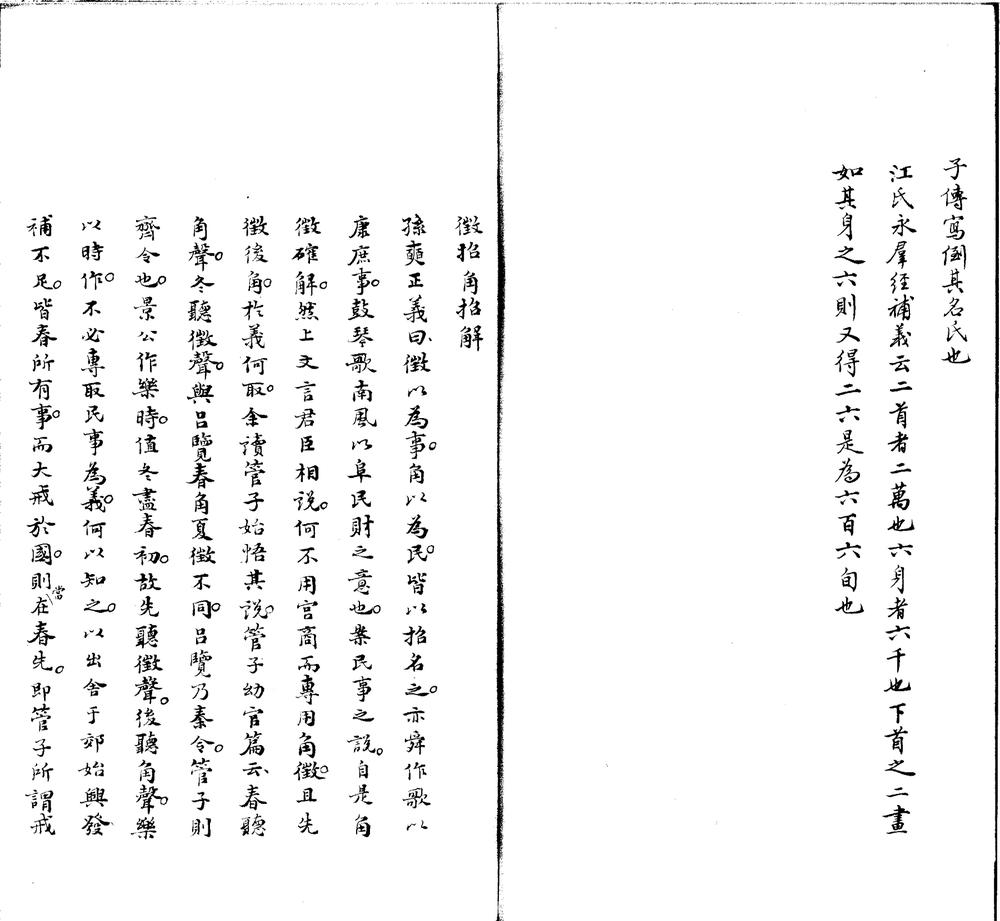 子傳寫倒其名氏也
江氏永羣經補義云二首者二萬也六身者六千也下首之二畫
如其身之六則又得二六是為六百六旬也
徵招角招解
孫奭正義曰徵以為事。角以為民。皆以招名之。亦舜作歌以
康庶事。鼓琴歌南風以阜民財之意也。案民事之說。自是角
徵確解。然上文言君臣相說。何不用宮商而專用角徵。且先
徵後角。於義何取。余讀管子始悟其說。管子幼官篇云。春聽
角聲。冬聽徵聲。與呂覽春角夏徵不同。呂覽乃秦令。管子則
齊令也。景公作樂時。值冬盡春初。故先聽徵聲。後聽角聲。樂
以時作。不必專取民事為義。何以知之。以出舍于郊始興發
補不足。皆春所有事。而大戒於國。則當在春先。即管子所謂戒